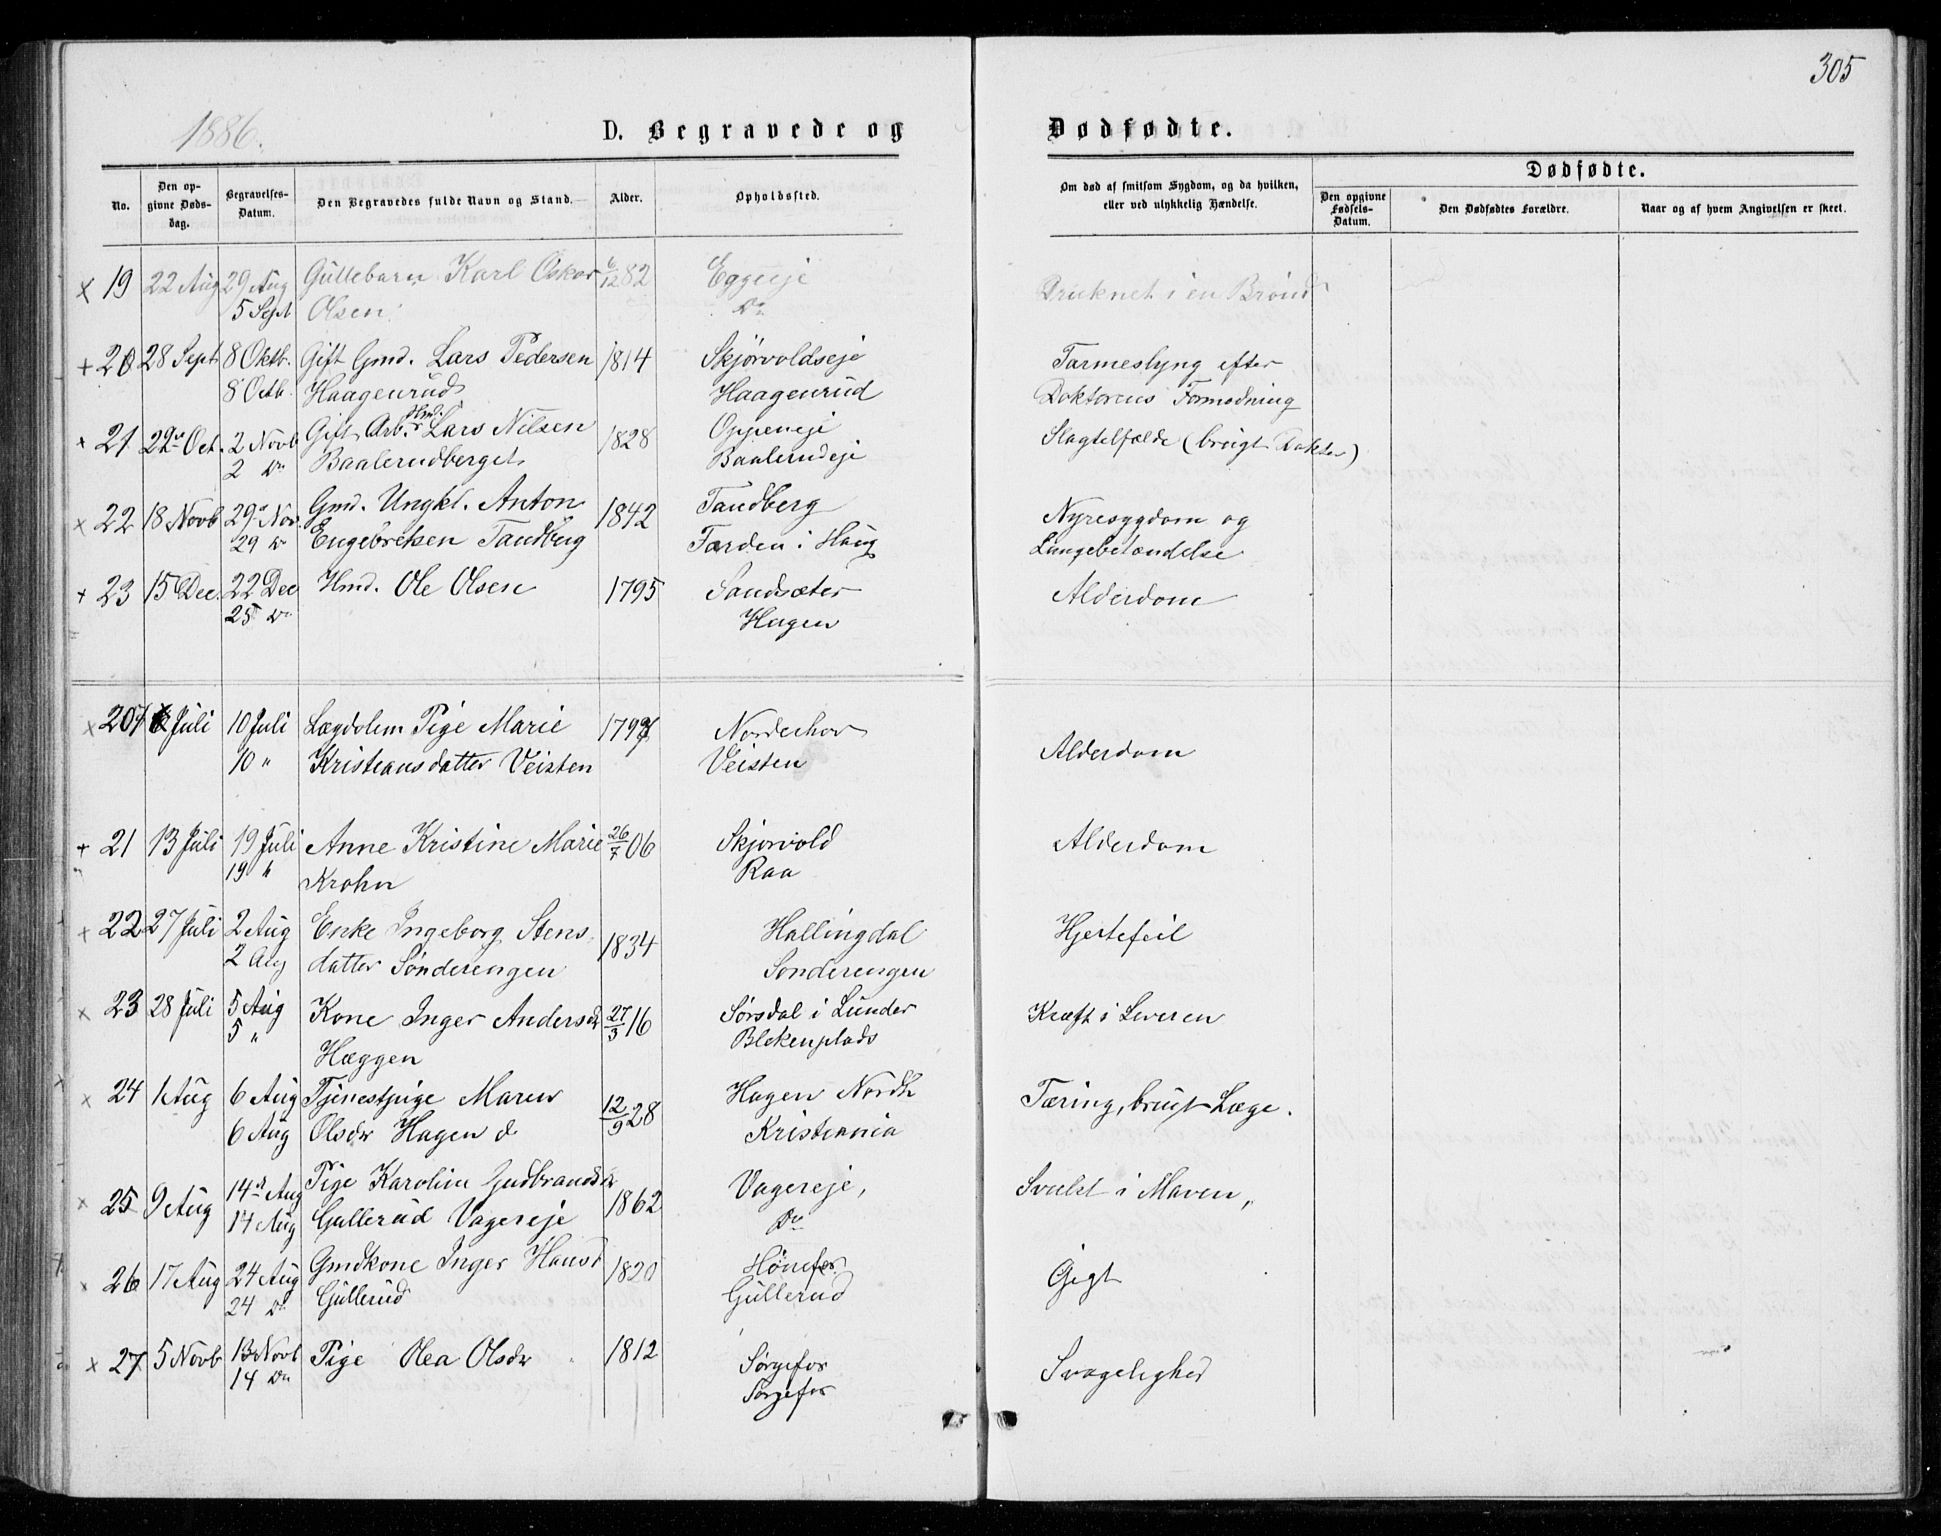 305
1886.
D. Begravede og Dødfødte.
No.
Den opgivne Dødsdag.
Begravelses-Datum.
Den Begravedes fulde Navn og Stand.
Alder.
Opholdssted.
Om død af smitsom Sygdom, og da hvilken, eller ved ulykkelig Hændelse.
Dødfødte.
Den opgivne Fødsels-Datum.
Den Dødfødtes Forældre.
Naar og af hvem Angivelsen er skeet.
x 19 22 Aug 29 Aug Guttebarn Karl Oskar 6/12 82 Eggeeje Druknet i en Brønd
5 Sept Olsen. Do
+ 20 28 Sept 8 Oktb. Gift Gmd. Lars Pedersen 1814 Skjørvoldseje Tarmeslyng efter
8 Octb. Haagenrud Haagenrud Doktorens Formodning
+ 21 29 Oct. 2 Novb Gift Arb. Hmd. Lars Nilsen 1828 Oppeneje Slagtilfælde (brugt Dokter)
2 Do Baalerudberget Baalerudeje
x 22 18 Novb 29 Nov. Gmd. Ungkl. Anton 1842 Tandberg Nyresygdom og
29 Do Engebretsen Tandberg Færden i Haug Lungebetændelse
+ 23 15 Dec. 22 Dec Hmd. Ole Olsen 1795 Sandsæter Alderdom
25 Do Hagen
x 20 Juli 10 Juli Lægdslem Pige Marie Norderhov Alderdom
10 " Kristiansdatter Veisten Veisten
+ 21 13 Juli 19 Juli Anne Kristine Marie 26/7 06 Skjørvold Alderdom
19 " Krohn Raa
+ 22 27 Juli 2 Aug Enke Ingeborg Stens 1834 Hallingdal Hjertefeil
2 Aug datter Sønderengen Sonderengen
x 23 28 Juli 5 Aug Kone Inger Andersdr 27/3 16 Sørsdal i Lunder Kræft i Leveren
5 " Hæggen Blekenplads
x 24 1 Aug 6 Aug Tjenestpige Maren 12/9 28 Hagen Nordh Tæring, brugt Læge.
6 Aug Olsdr Hagen d Kristiania
x 25 9 Aug 14de Aug Pige Karoline Gudbrandsdr 1862 Vagereje, Svulst i Maven,
14 Aug Gullerud Vagereje Do
x 26 17 Aug 24 Aug Gmdkone Inger Hansd 1820 Hønefos Gigt
24 Do Gullerud Gullerud
x 27 5 Novb 13 Novb Pige Olea Olsdr 1812 Sørgefos Svagelighed
14 Do Sørgefos